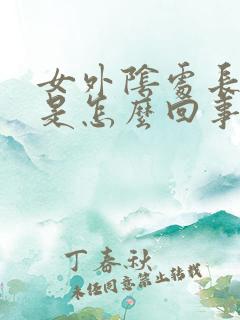 女外陰處長
是怎麼回事
丁春秋
未经同意禁止转载